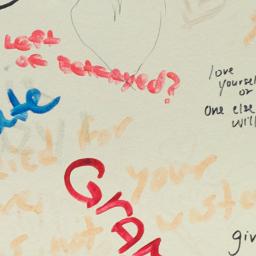 Left
or Betrayed?
love
yourself
or
one else
will
died for
your
not waste
Gra
giv